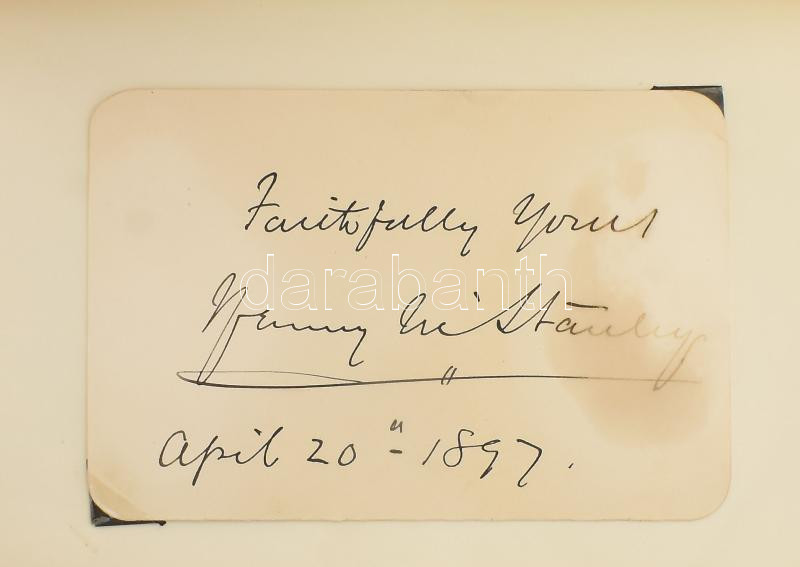 Faithfully Yours
darabanth
Henry M Stanley
April 20th 1897.